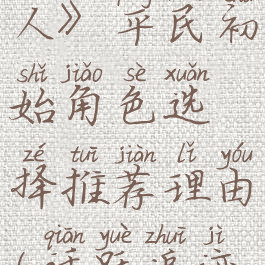 人》平民初
shǐ jiǎo sè xuǎn
始角色选
zé tuī jiàn lǐ yóu
择推荐理由
qiān yuè zhuī jì